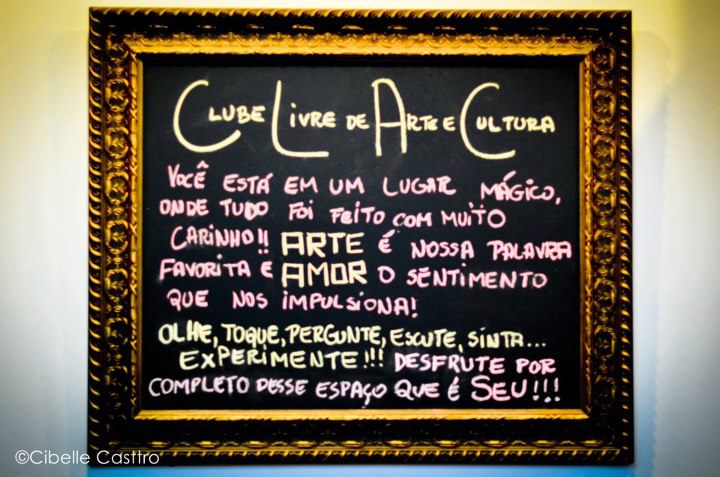 CLUBE LIVRE DE ARTE E CULTURA
VOCÊ ESTÁ EM UM LUGAR MÁGICO,
ONDE TUDO FOI FEITO COM MUITO
CARINHO!! ARTE É NOSSA PALAVRA
FAVORITA E AMOR O SENTIMENTO
QUE NOS IMPULSIONA!
OLHE, TOQUE, PERGUNTE, ESCUTE, SINTA...
EXPERIMENTE!!! DESFRUTE POR
COMPLETO DESSE ESPAÇO QUE É SEU!!!
©Cibelle Casttro